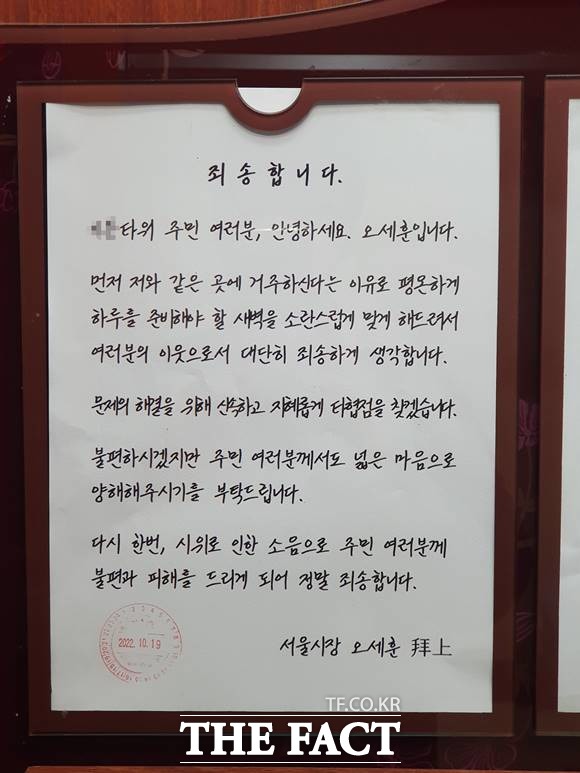 죄송합니다.
타워 주민 여러분, 안녕하세요. 오세훈입니다.
먼저 저와 같은 곳에 거주하신다는 이유로 평온하게
하루를 준비해야 할 새벽을 소란스럽게 맞게 해드려서
여러분의 이웃으로서 대단히 죄송하게 생각합니다.
문제의 해결을 위해 신속하고 지혜롭게 타협점을 찾겠습니다.
불편하시겠지만 주민 여러분께서도 넓은 마음으로
양해해주시기를 부탁드립니다.
다시 한번, 시위로 인한 소음으로 주민 여러분께
불편과 피해를 드리게 되어 정말 죄송합니다.
2022.10.19
서울시장 오세훈 拜上
TF.CO.KR
THE FACT